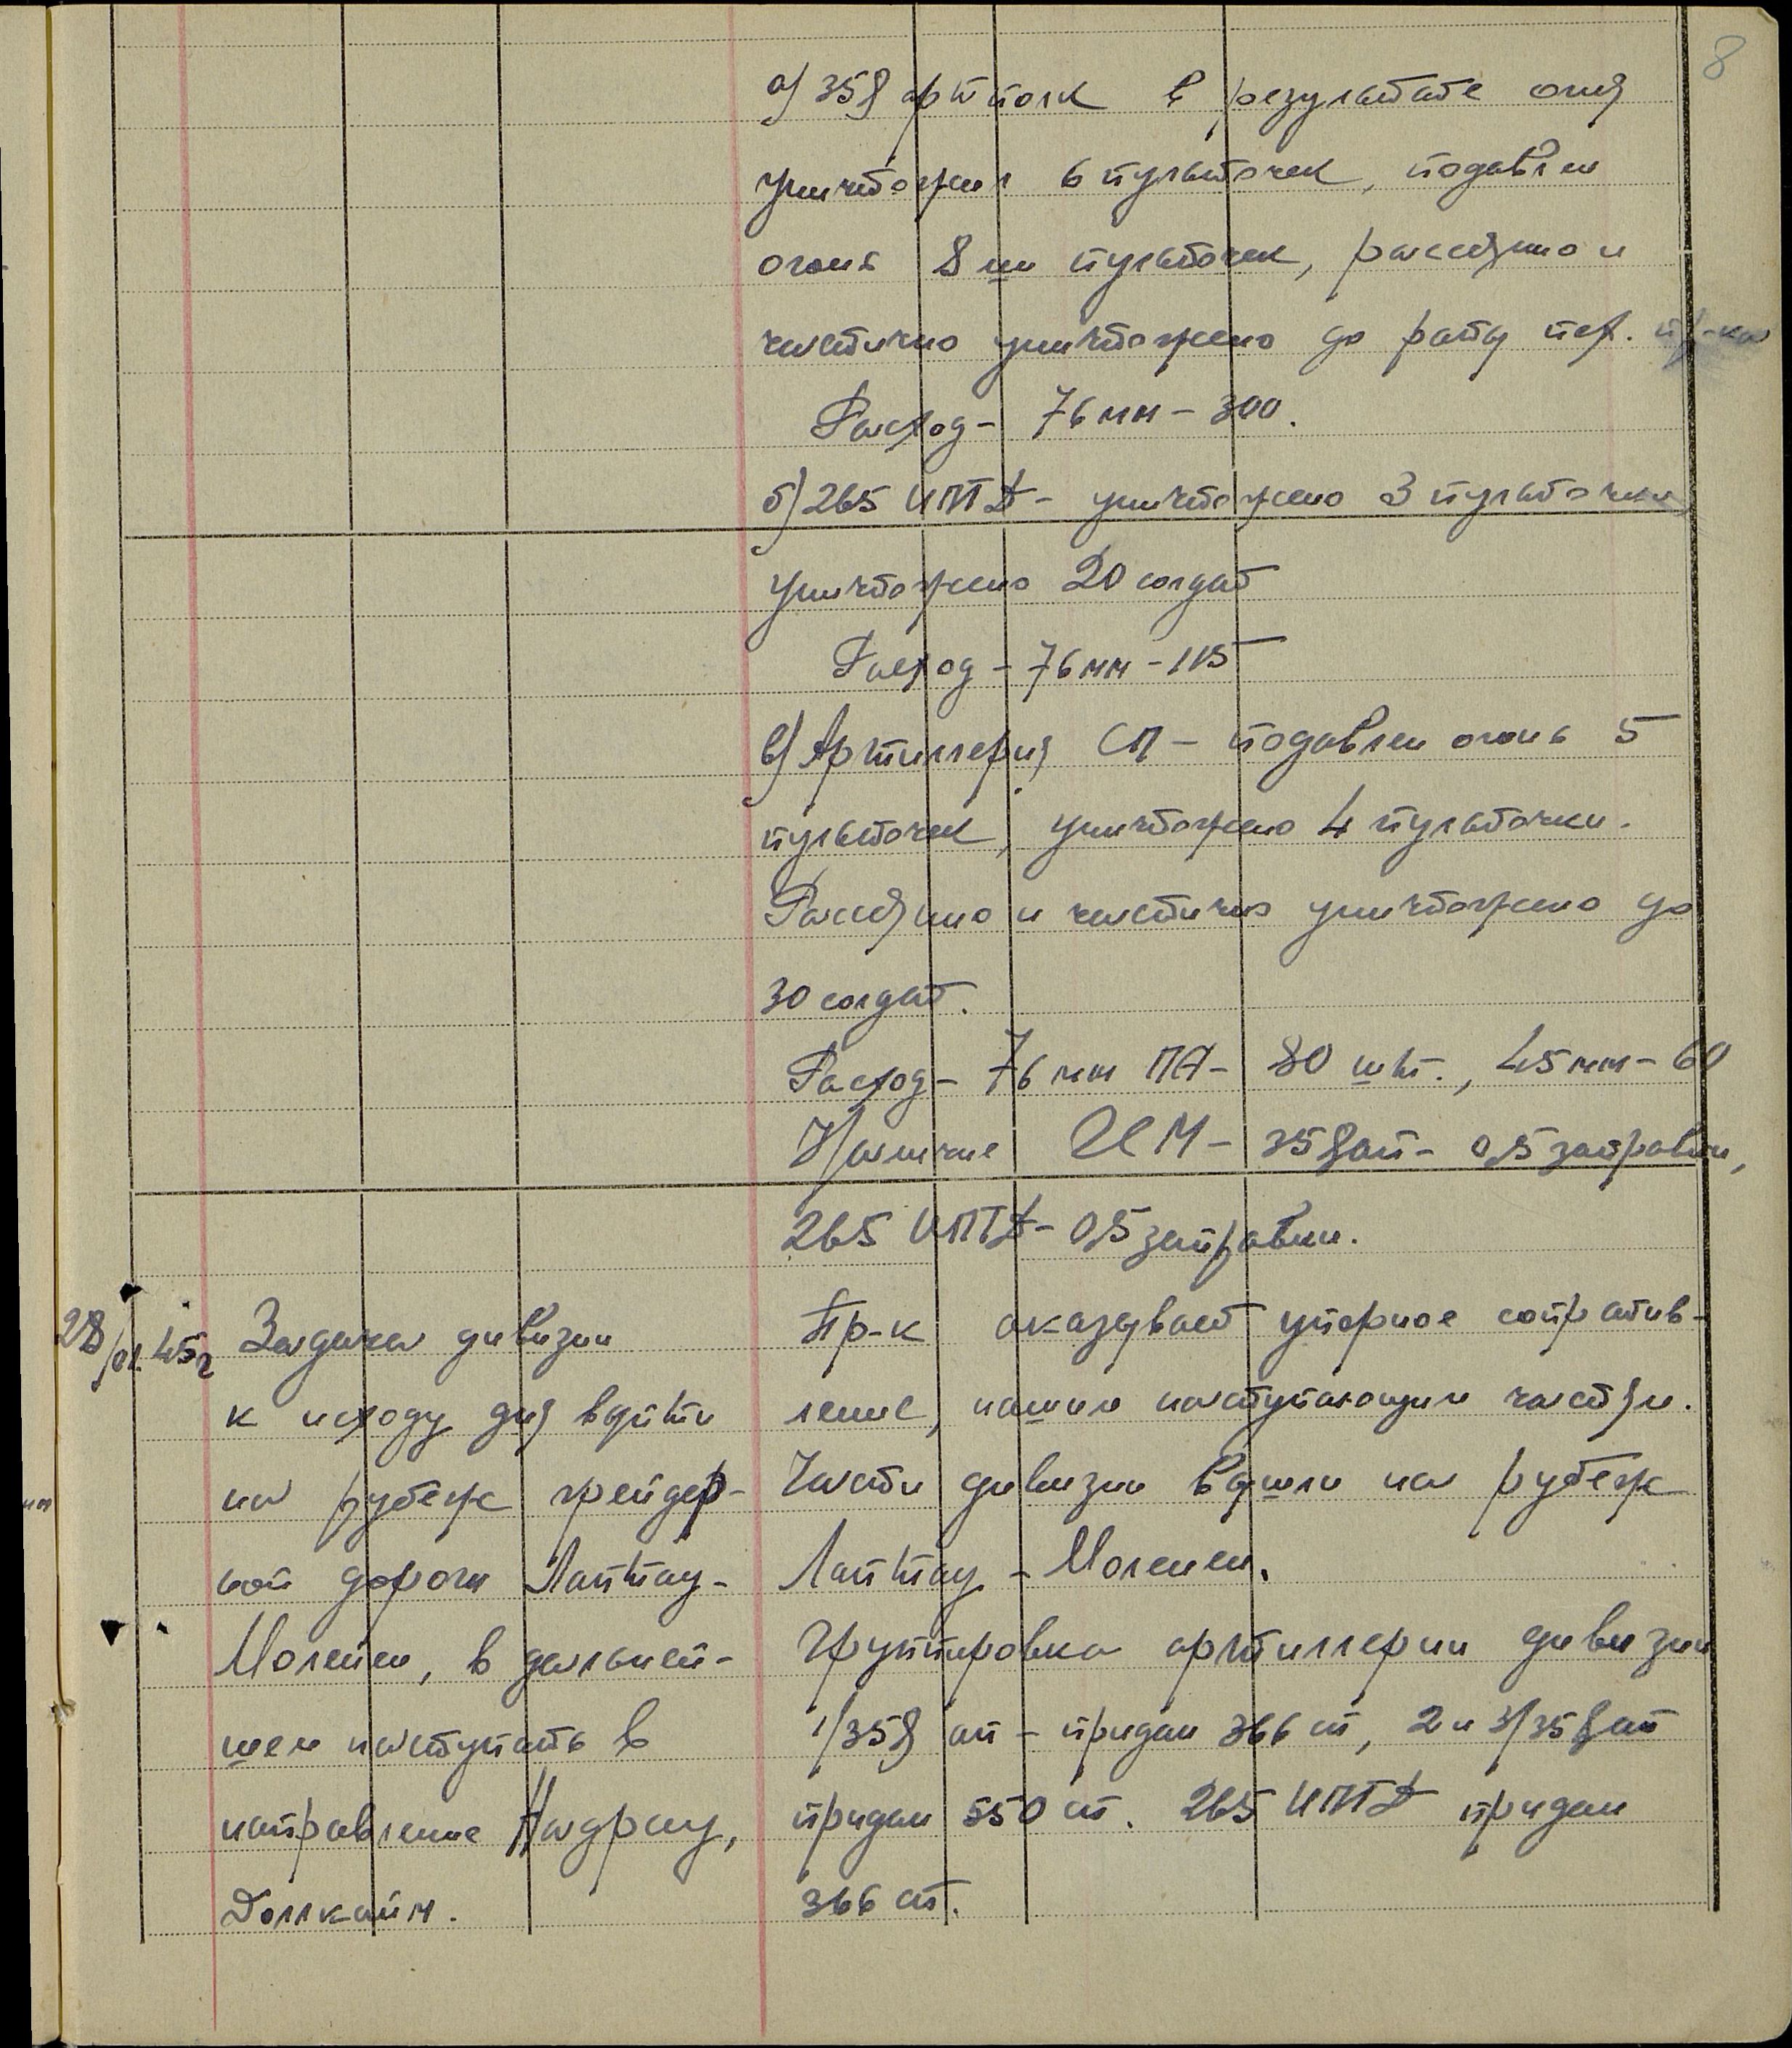 8
а) 358 артполк в результате огня
уничтожил 6 пульточек, подавлен
огонь 8 ми пульточек, рассеяно и
частично уничтожено до роты пех. пр-ка
Расход - 76 мм - 300.
б) 265 ИПТД - уничтожено 3 пульточки,
уничтожено 20 солдат
Расход - 76 мм - 115
в) Артиллерия СП - подавлен огонь 5
пульточек, уничтожено 4 пульточки.
Рассеяно и частично уничтожено до
30 солдат.
Расход - 76 мм ПА - 80 шт., 45 мм - 60
Наличие ГСМ - 358 ап - 0,5 заправки,
265 ИПТД - 0,5 заправки.
28/01.45г
Задача дивизии
к исходу дня выйти
на рубеж грейдер-
ной дороги Лаптау-
Моленен, в дальней-
шем наступать в
направление Надрау,
Доллкайм.
Пр-к оказывает упорное сопротив-
ление, нашим наступающим частям.
Части дивизии вышли на рубеж
Лаптау - Моленен.
Группировка артиллерии дивизии
1/358 ап - придан 366 сп, 2 и 3/358 ап
придан 550 сп. 265 ИПТД придан
366 сп.